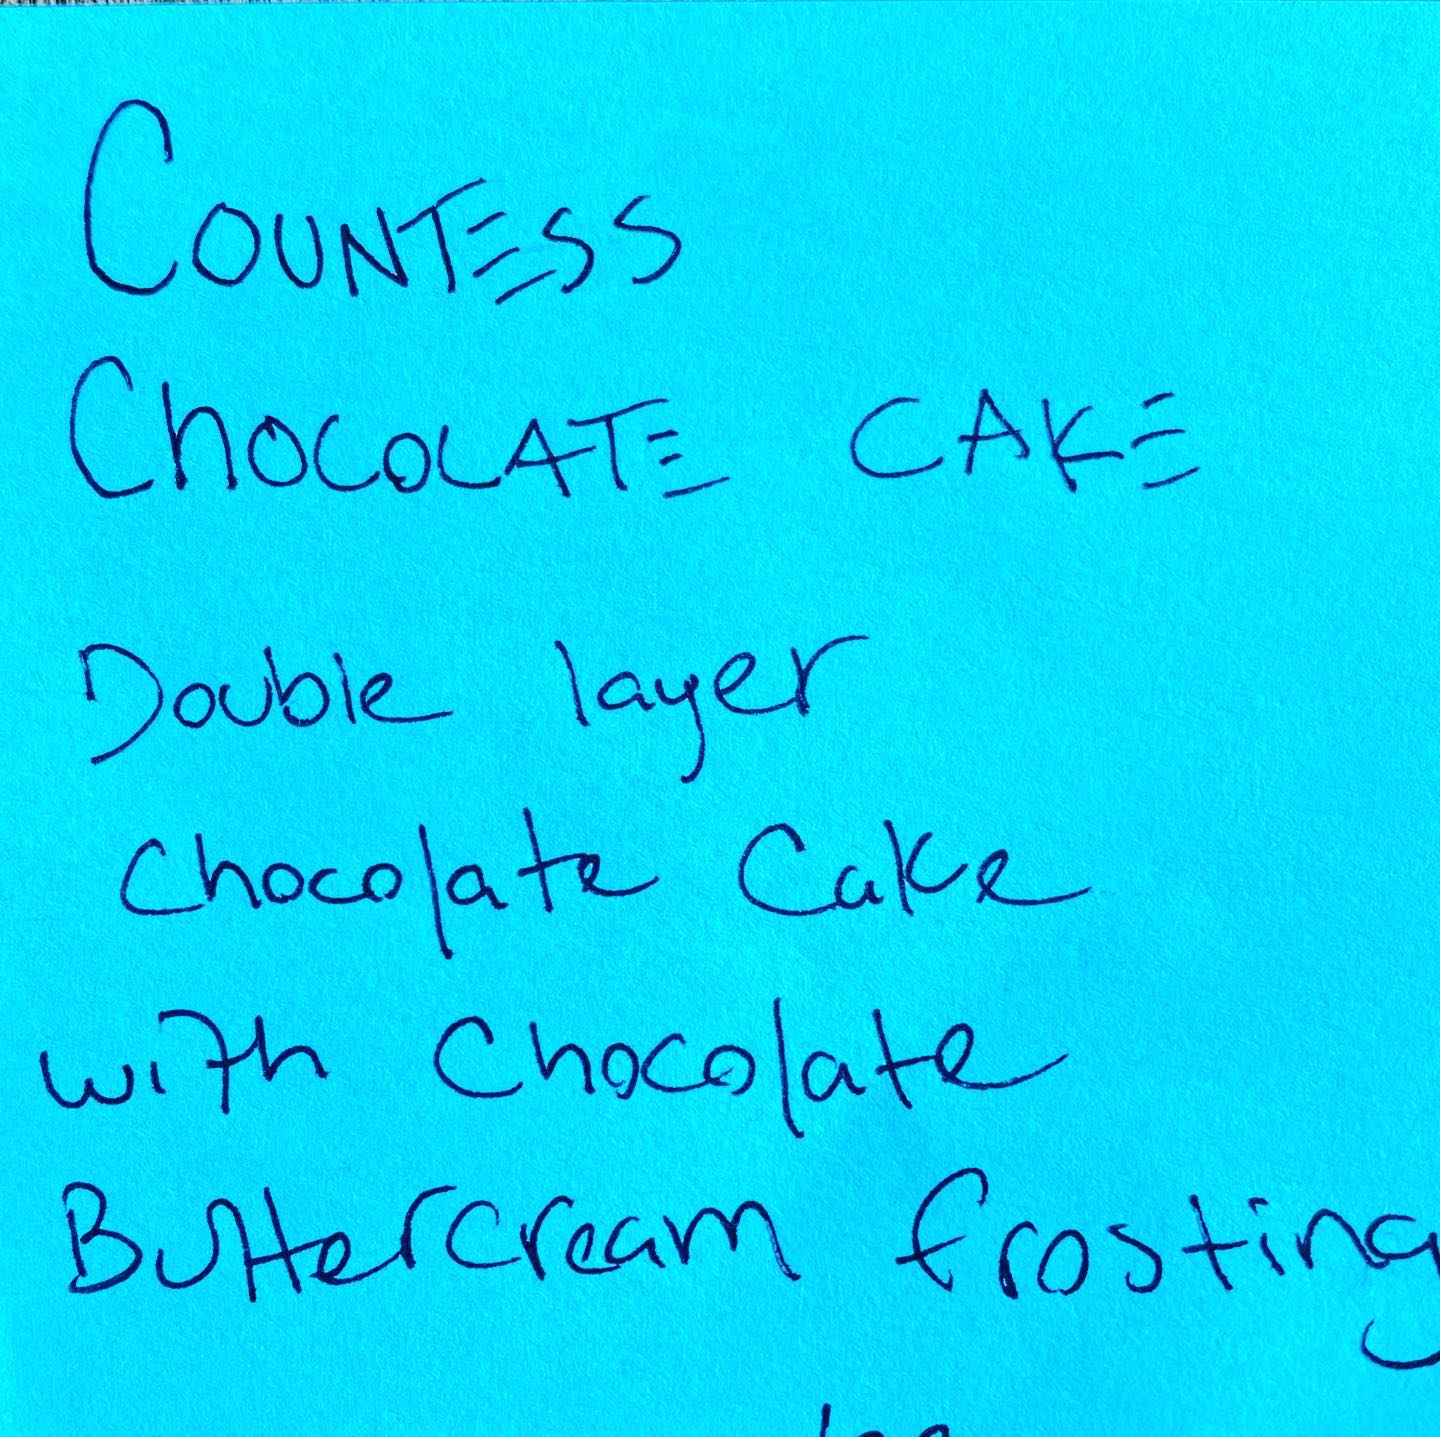 COUNTESS
CHOCOLATE CAKE
Double layer
Chocolate Cake
with Chocolate
Buttercream frosting